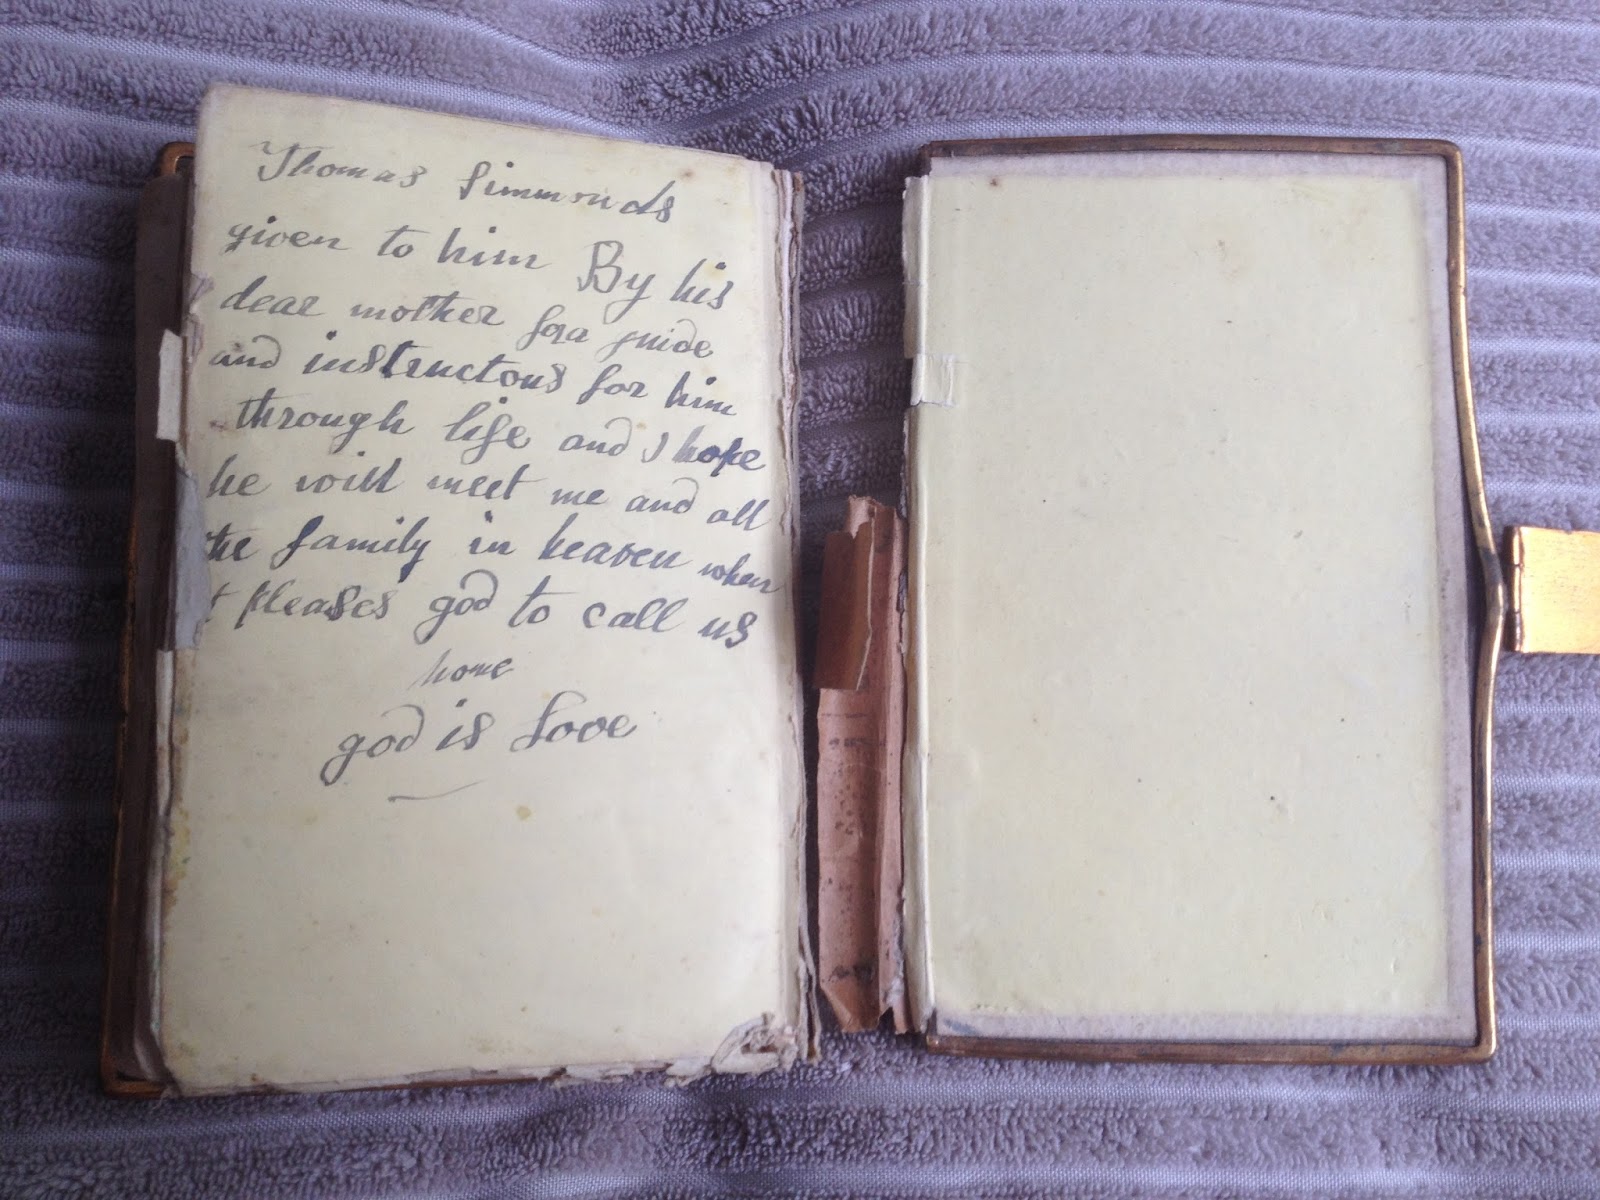 Thomas Simmonds
given to him By his
dear mother for a guide
and instructous for him
through life and I hope
he will meet me and all
the family in heaven when
t pleases god to call us
home
god is Love